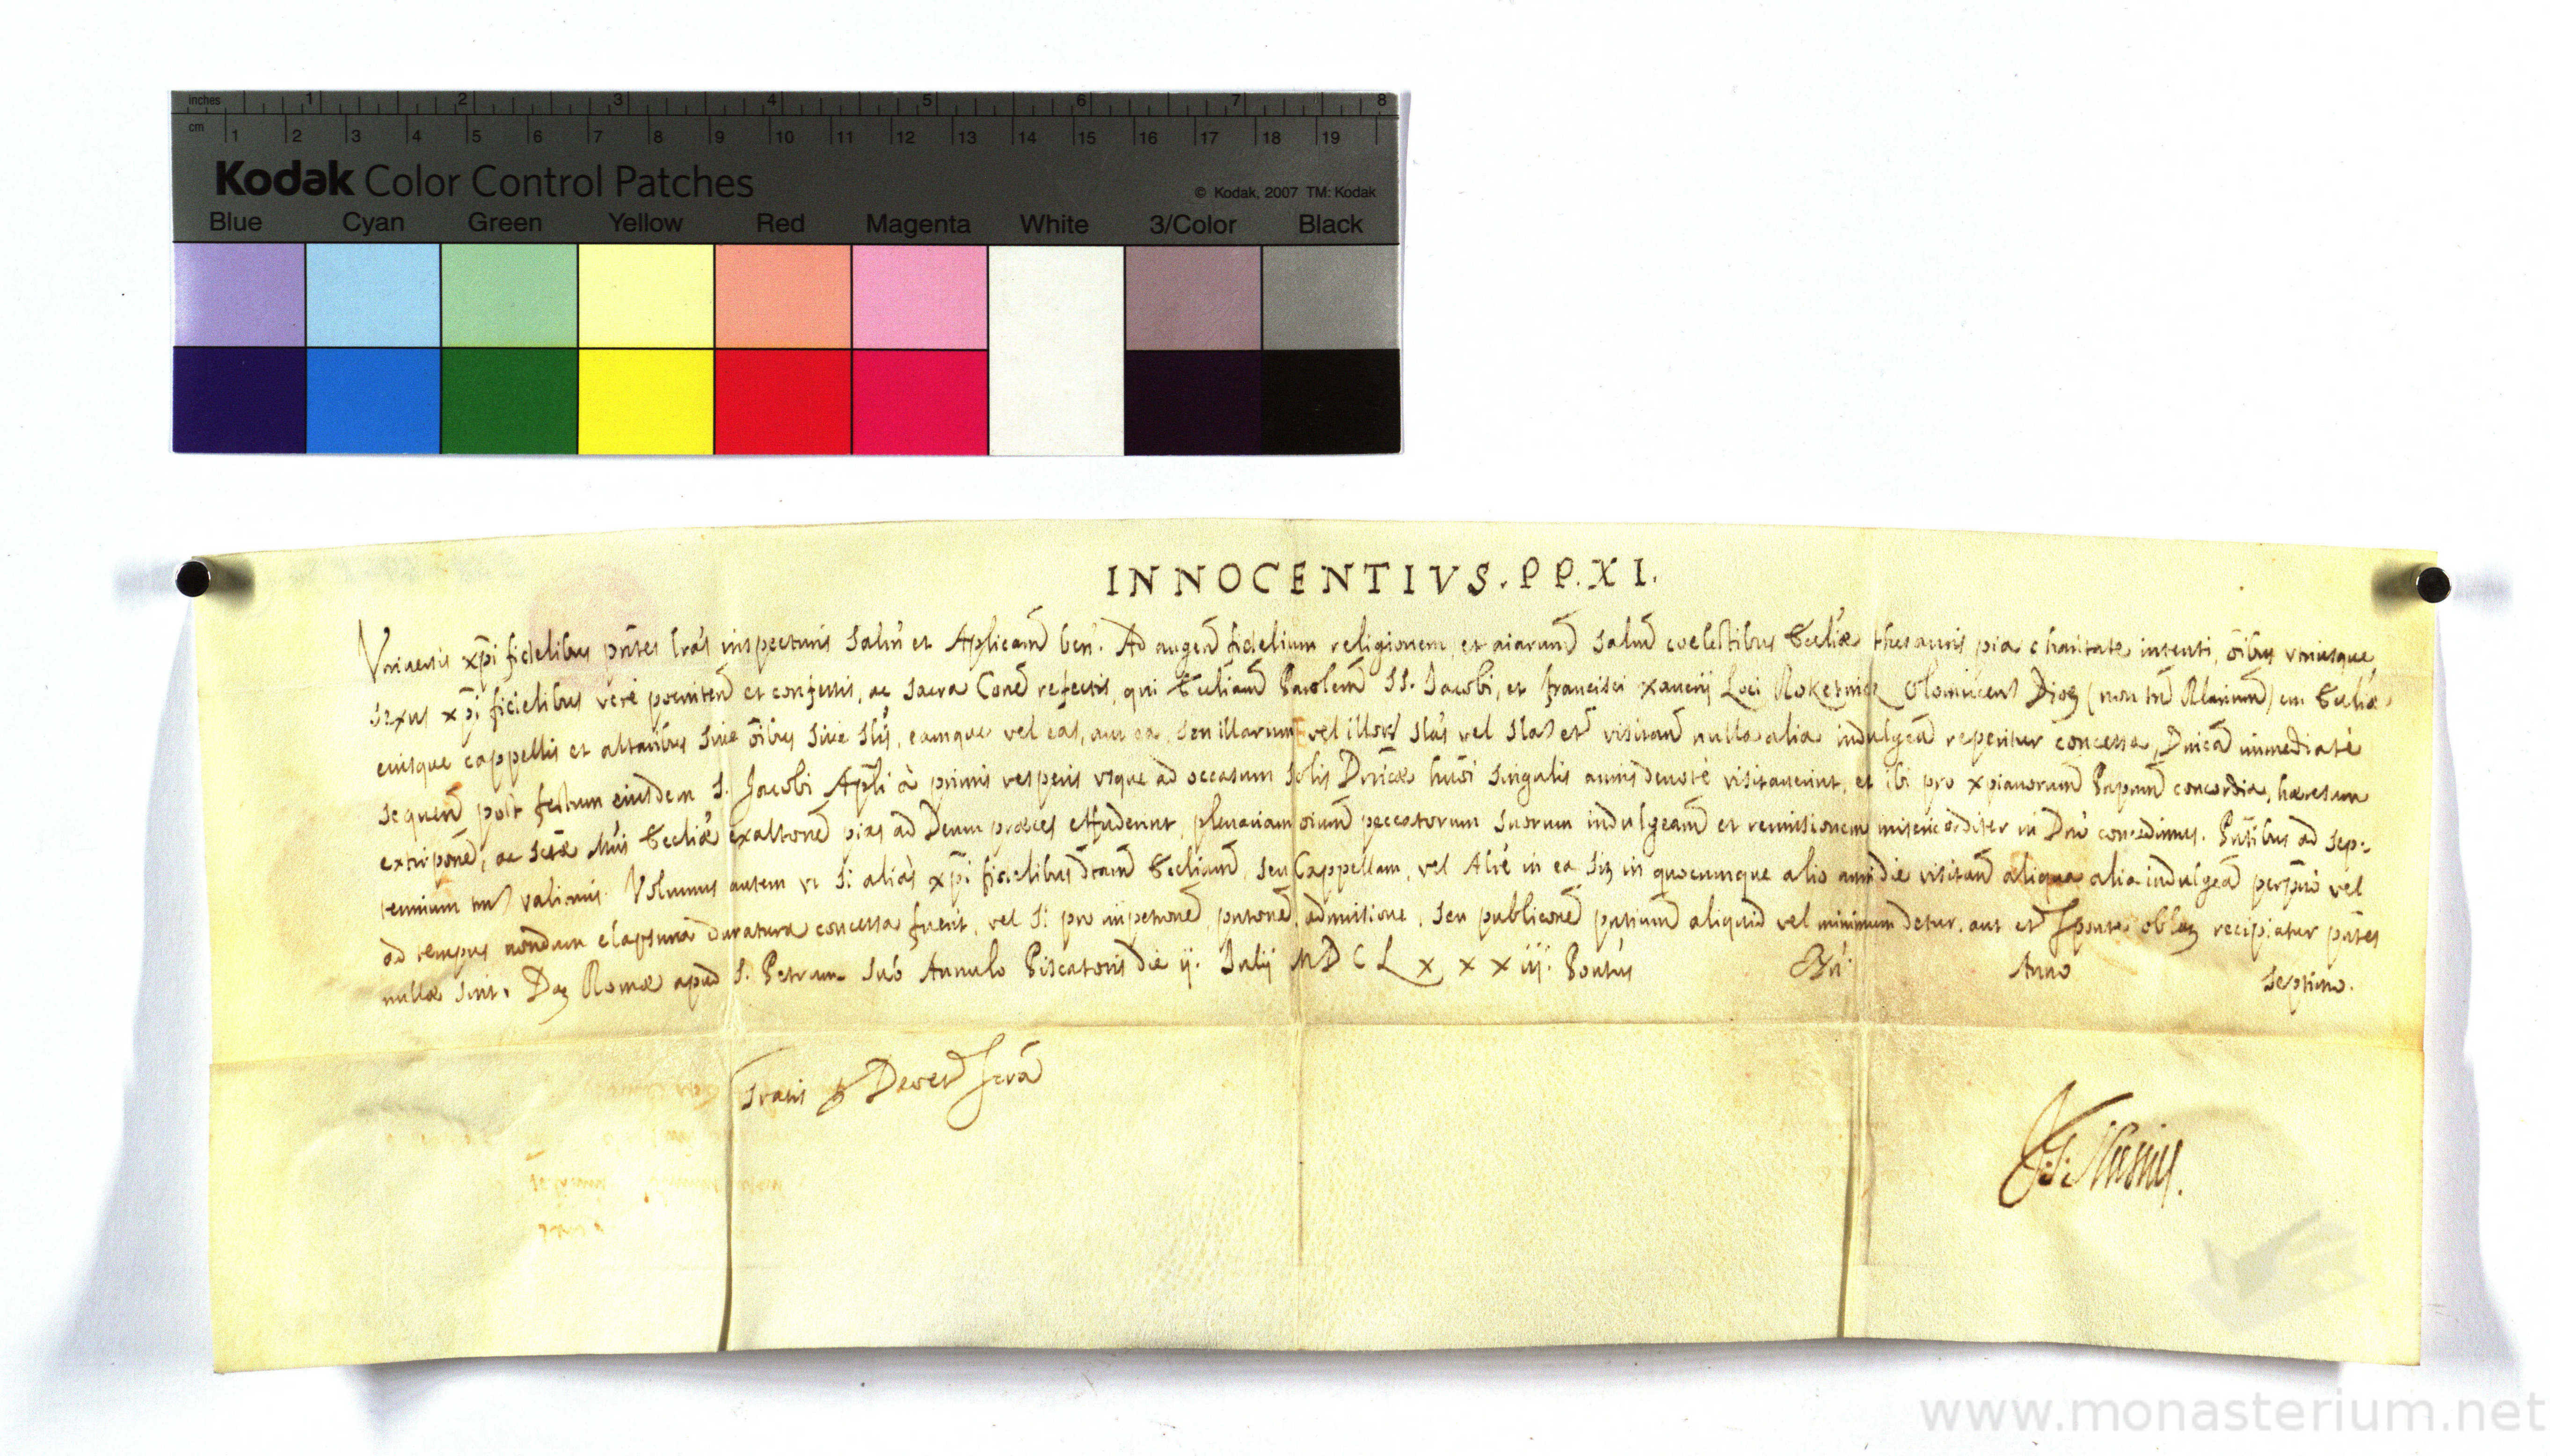 inches 1 2 3 4 5 6 7 8
cm 1 2 3 4 5 6 7 8 9 10 11 12 13 14 15 16 17 18 19
Kodak Color Control Patches
© Kodak, 2007 TM: Kodak
Blue Cyan Green Yellow Red Magenta White 3/Color Black
INNOCENTIVS. PP. XI.
Vniuersis xp̄i fidelibus pn̄tes lrãs inspecturis Salũ et Aplicam̃ ben̄. Ad augen̄ fidelium religionem, et aīarum̃ Salut̃ coelestibus Eccliæ thesauris pia charitate intenti, oībus vtriusque
sexus xp̄i fidelibus verè poeniten̄ et confessis, ac Sacra Con̄e refectis, qui Eccliam̃ Parolem̃ SS. Jacobi, et francisci xauerij Loci Roketnicz Olomucen̄ Dioz (non tñ Rlarium̃) cui Eccliæ
eiusque cappellis et altaribus siue oībus siue slis, eamque vel eas, aut ea seu illarum vel illor̃ slas vel sla et̃ visitan̄ nulla alia indulgeñ reperitur concessa, Dnica immediatè
sequen̄ post festum eiusdem S. Jacobi Apli à primis vesperis vsque ad occasum solis Dnicæ huōi singulis annis deuotè visitauerint, et ibi pro xpianorum̃ Prīpum̃ concordia, hæresum
extirpone, ac Sctæ Mris Eccliæ exaltone pias ad Deum præces effuderint, plenariam oīum peccatorum suorum indulgeam̃ et remissionem misericorditer in Dno concedimus. Pn̄tibus ad sep-
tennium tm̃ valituris. Volumus autem vt si aliàs xp̄i fidelibus dtam̃ Eccliam̃, seu Cappellam, vel Alre in ea siz in quocumque alio anni die visitan̄ aliqua alia indulgeñ perpuo vel
ad tempus nondum elapsum duratura concessa fuerit, vel si pro impetrone, pntone, admissione, seu publicone pn̄tium aliquid vel minimum detur, aut et̃ sponte oblaz recipiatur pn̄tes
nullæ sint. Daz Romæ apud S. Petrum sub Annulo Piscatoris die ij. Julij MDCLXXXiij. Pontus Nri Anno Septimo.
Gratis p Deo et Scrã
www.monasterium.net